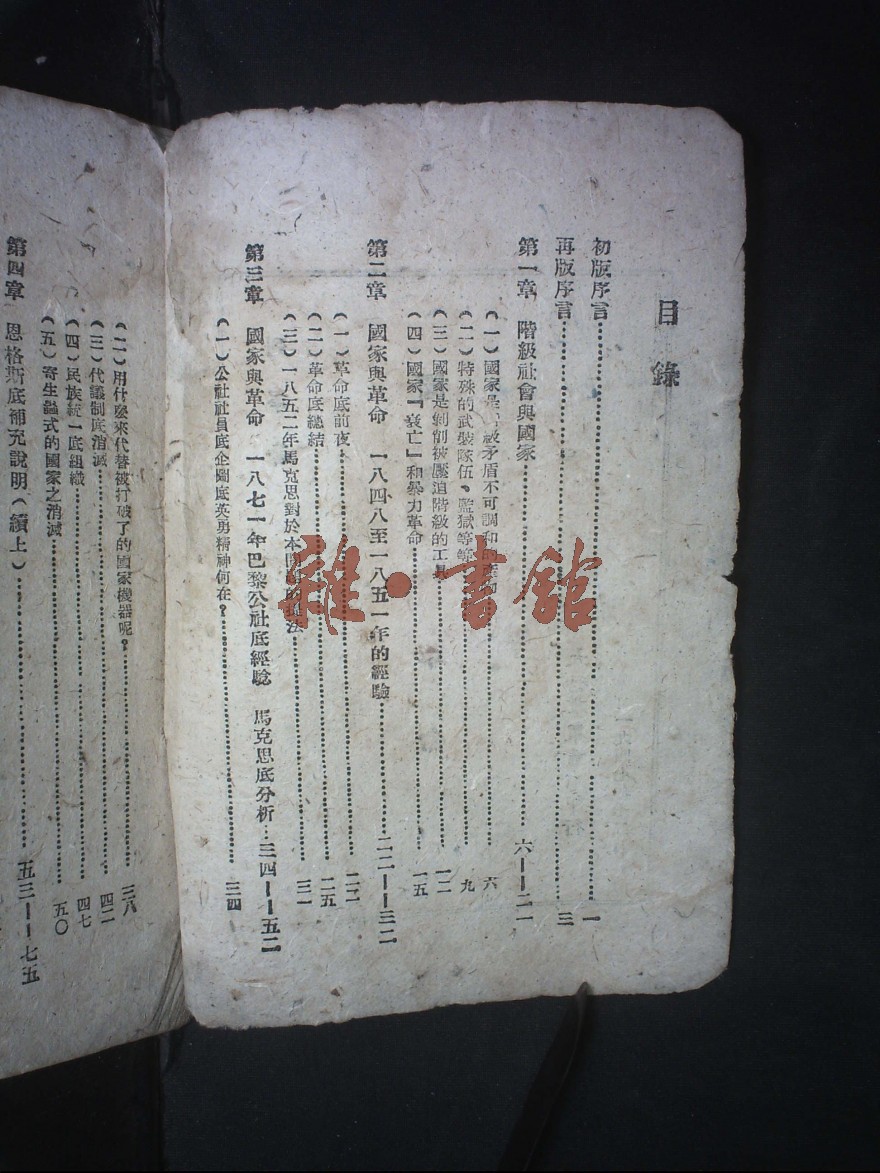 目錄
初版序言 一
再版序言 三
第一章 階級社會與國家 六——二一
(一)國家是 級矛盾不可調和 產物 六
(二)特殊的武裝隊伍、監獄等等 九
(三)國家是剝削被壓迫階級的工具 一二
(四)國家『衰亡』和暴力革命 一五
第二章 國家與革命 一八四八至一八五一年的經驗 二二——三二
(一)革命底前夜 二二
(二)革命底總結 二五
(三)一八五二年馬克思對於本問 的 法 三一
第三章 國家與革命 一八七一年巴黎公社底經驗 馬克思底分析 三四——五二
(一)公社社員底企圖底英勇精神何在? 三四
(二)用什麼來代替被打破了的國家機器呢? 三八
(三)代議制底消滅 四二
(四)民族統一底組織 四七
(五)寄生蟲式的國家之消滅 五〇
第四章 恩格斯底補充說明(續上) 五三——七五
雜·書館